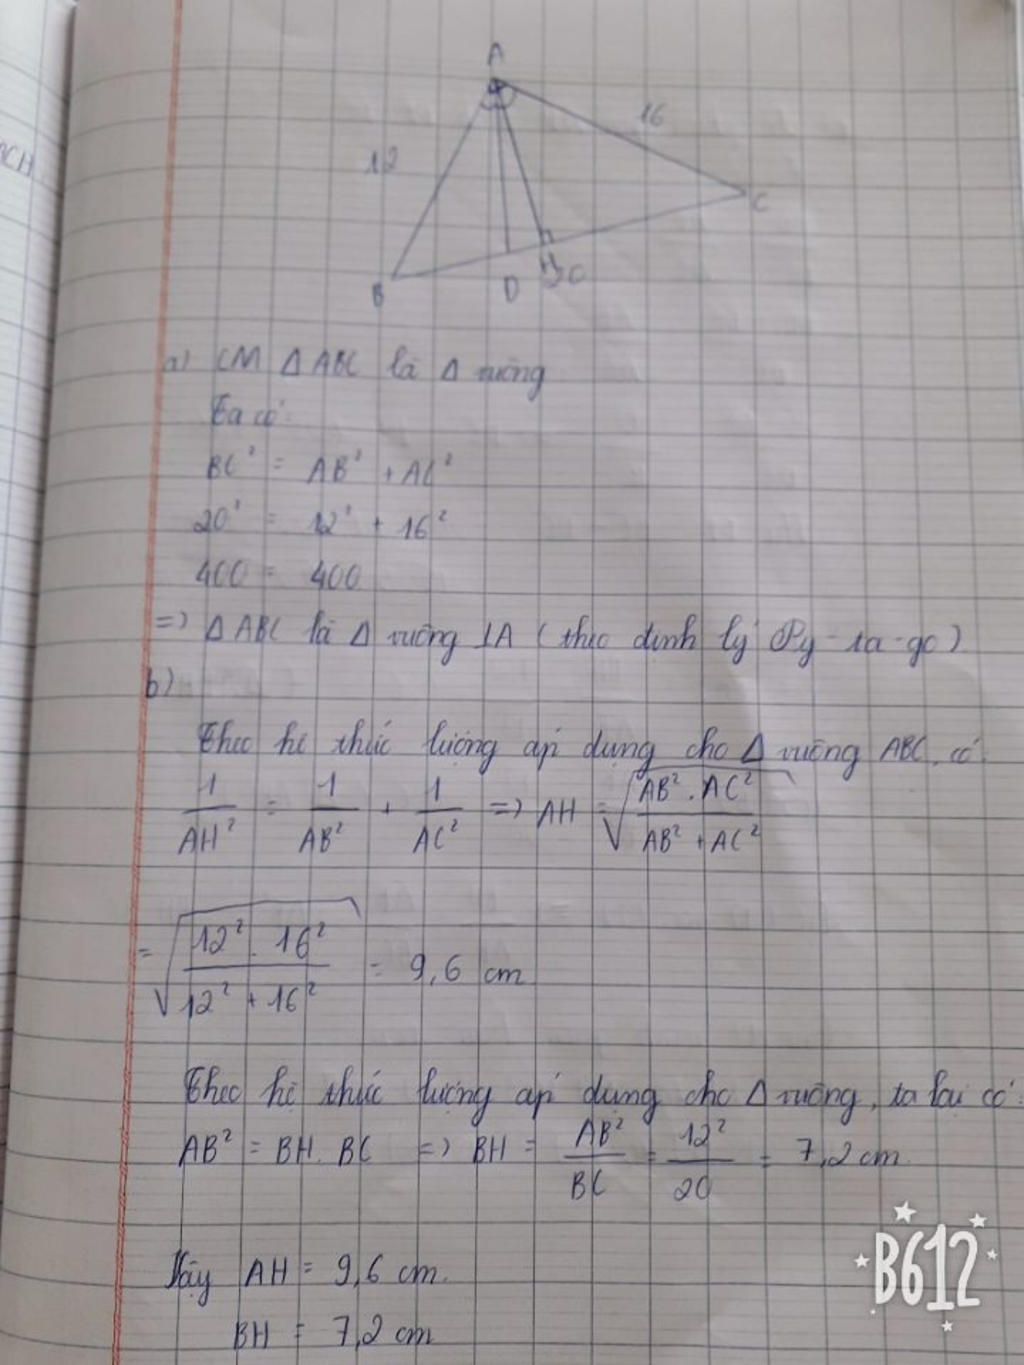 A
16
12
C
B
D
H
20
a) CM Δ ABC là Δ vuông
Ta có:
BC² = AB² + AC²
20² = 12² + 16²
400 = 400
=> Δ ABC là Δ vuông ⊥A (theo định lý Py-ta-go)
b)
Theo hệ thức lượng áp dụng cho Δ vuông ABC, có
1/AH² = 1/AB² + 1/AC² => AH = √(AB² . AC² / AB² + AC²)
= √(12² . 16² / 12² + 16²) = 9,6 cm
Theo hệ thức lượng áp dụng cho Δ vuông, ta lại có:
AB² = BH . BC => BH = AB²/BC = 12²/20 = 7,2 cm.
Vậy AH = 9,6 cm.
BH = 7,2 cm
B612